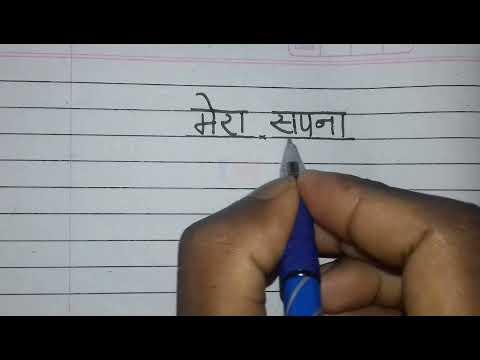 मेरा सपना